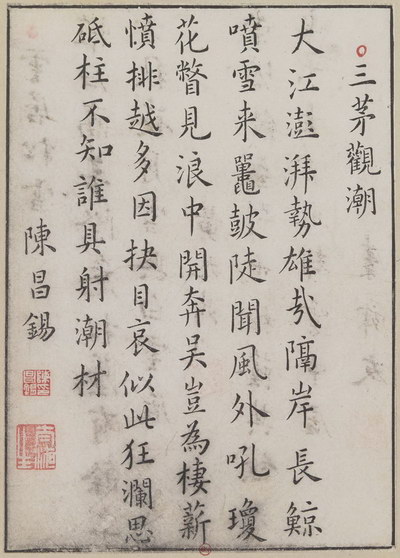 三茅觀潮
大江澎湃勢雄哉隔岸長鯨
噴雪来鼉鼓陡聞風外吼瓊
花瞥見浪中開奔吳豈為棲薪
憤排越多因抉目哀似此狂瀾思
砥柱不知誰具射潮材
陳昌錫